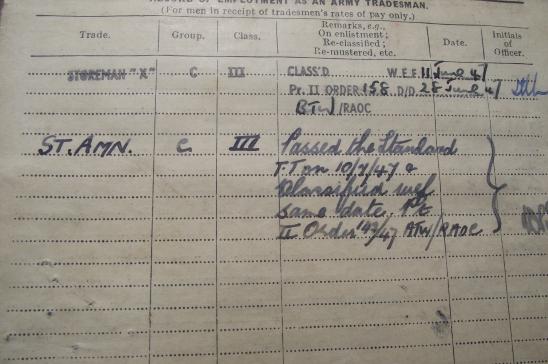 RECORD OF EMPLOYMENT AS AN ARMY TRADESMAN.
(For men in receipt of tradesmen's rates of pay only.)
Trade. Group. Class. Remarks, e.g., Date. Initials
On enlistment; of
Re-classified; Officer.
Re-mustered, etc.
STOREMAN "X" C III CLASS'D W.E.F. 11 June 47
Pr. II ORDER 158 D/D 28 June 47
BTW/RAOC
ST. AMN. C III Passed the Standard
T.T on 10/7/47 &
Classified wef
same date, Pt
II Order 43/47 ATW/RAOC